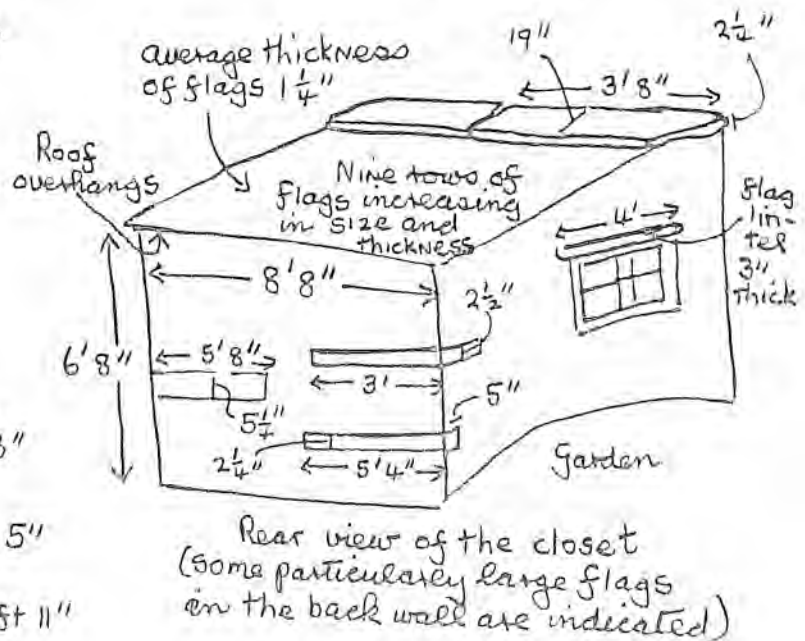 19"
2¼"
average thickness
of flags 1¼"
3'8"
Roof
overhangs
Nine rows of
flags increasing
in size and
thickness
4'
flag
lin-
tel
3"
thick
8'8"
2½"
6'8"
5'8"
3'
5"
2¼"
5'4"
Garden
5"
ft 11"
Rear view of the closet
(some particularly large flags
in the back wall are indicated)